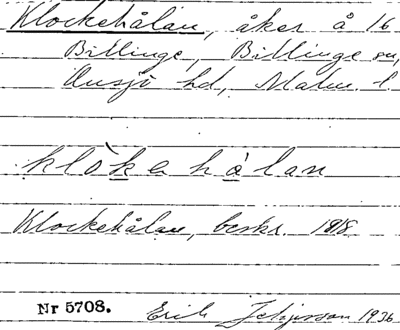 Klockehålan, åker å 16
Billinge, Billinge sn,
Onsjö hd, Malm. l.
klòkehålan
Klockehålan, beskr. 1918
Nr 5708. Erik 1936